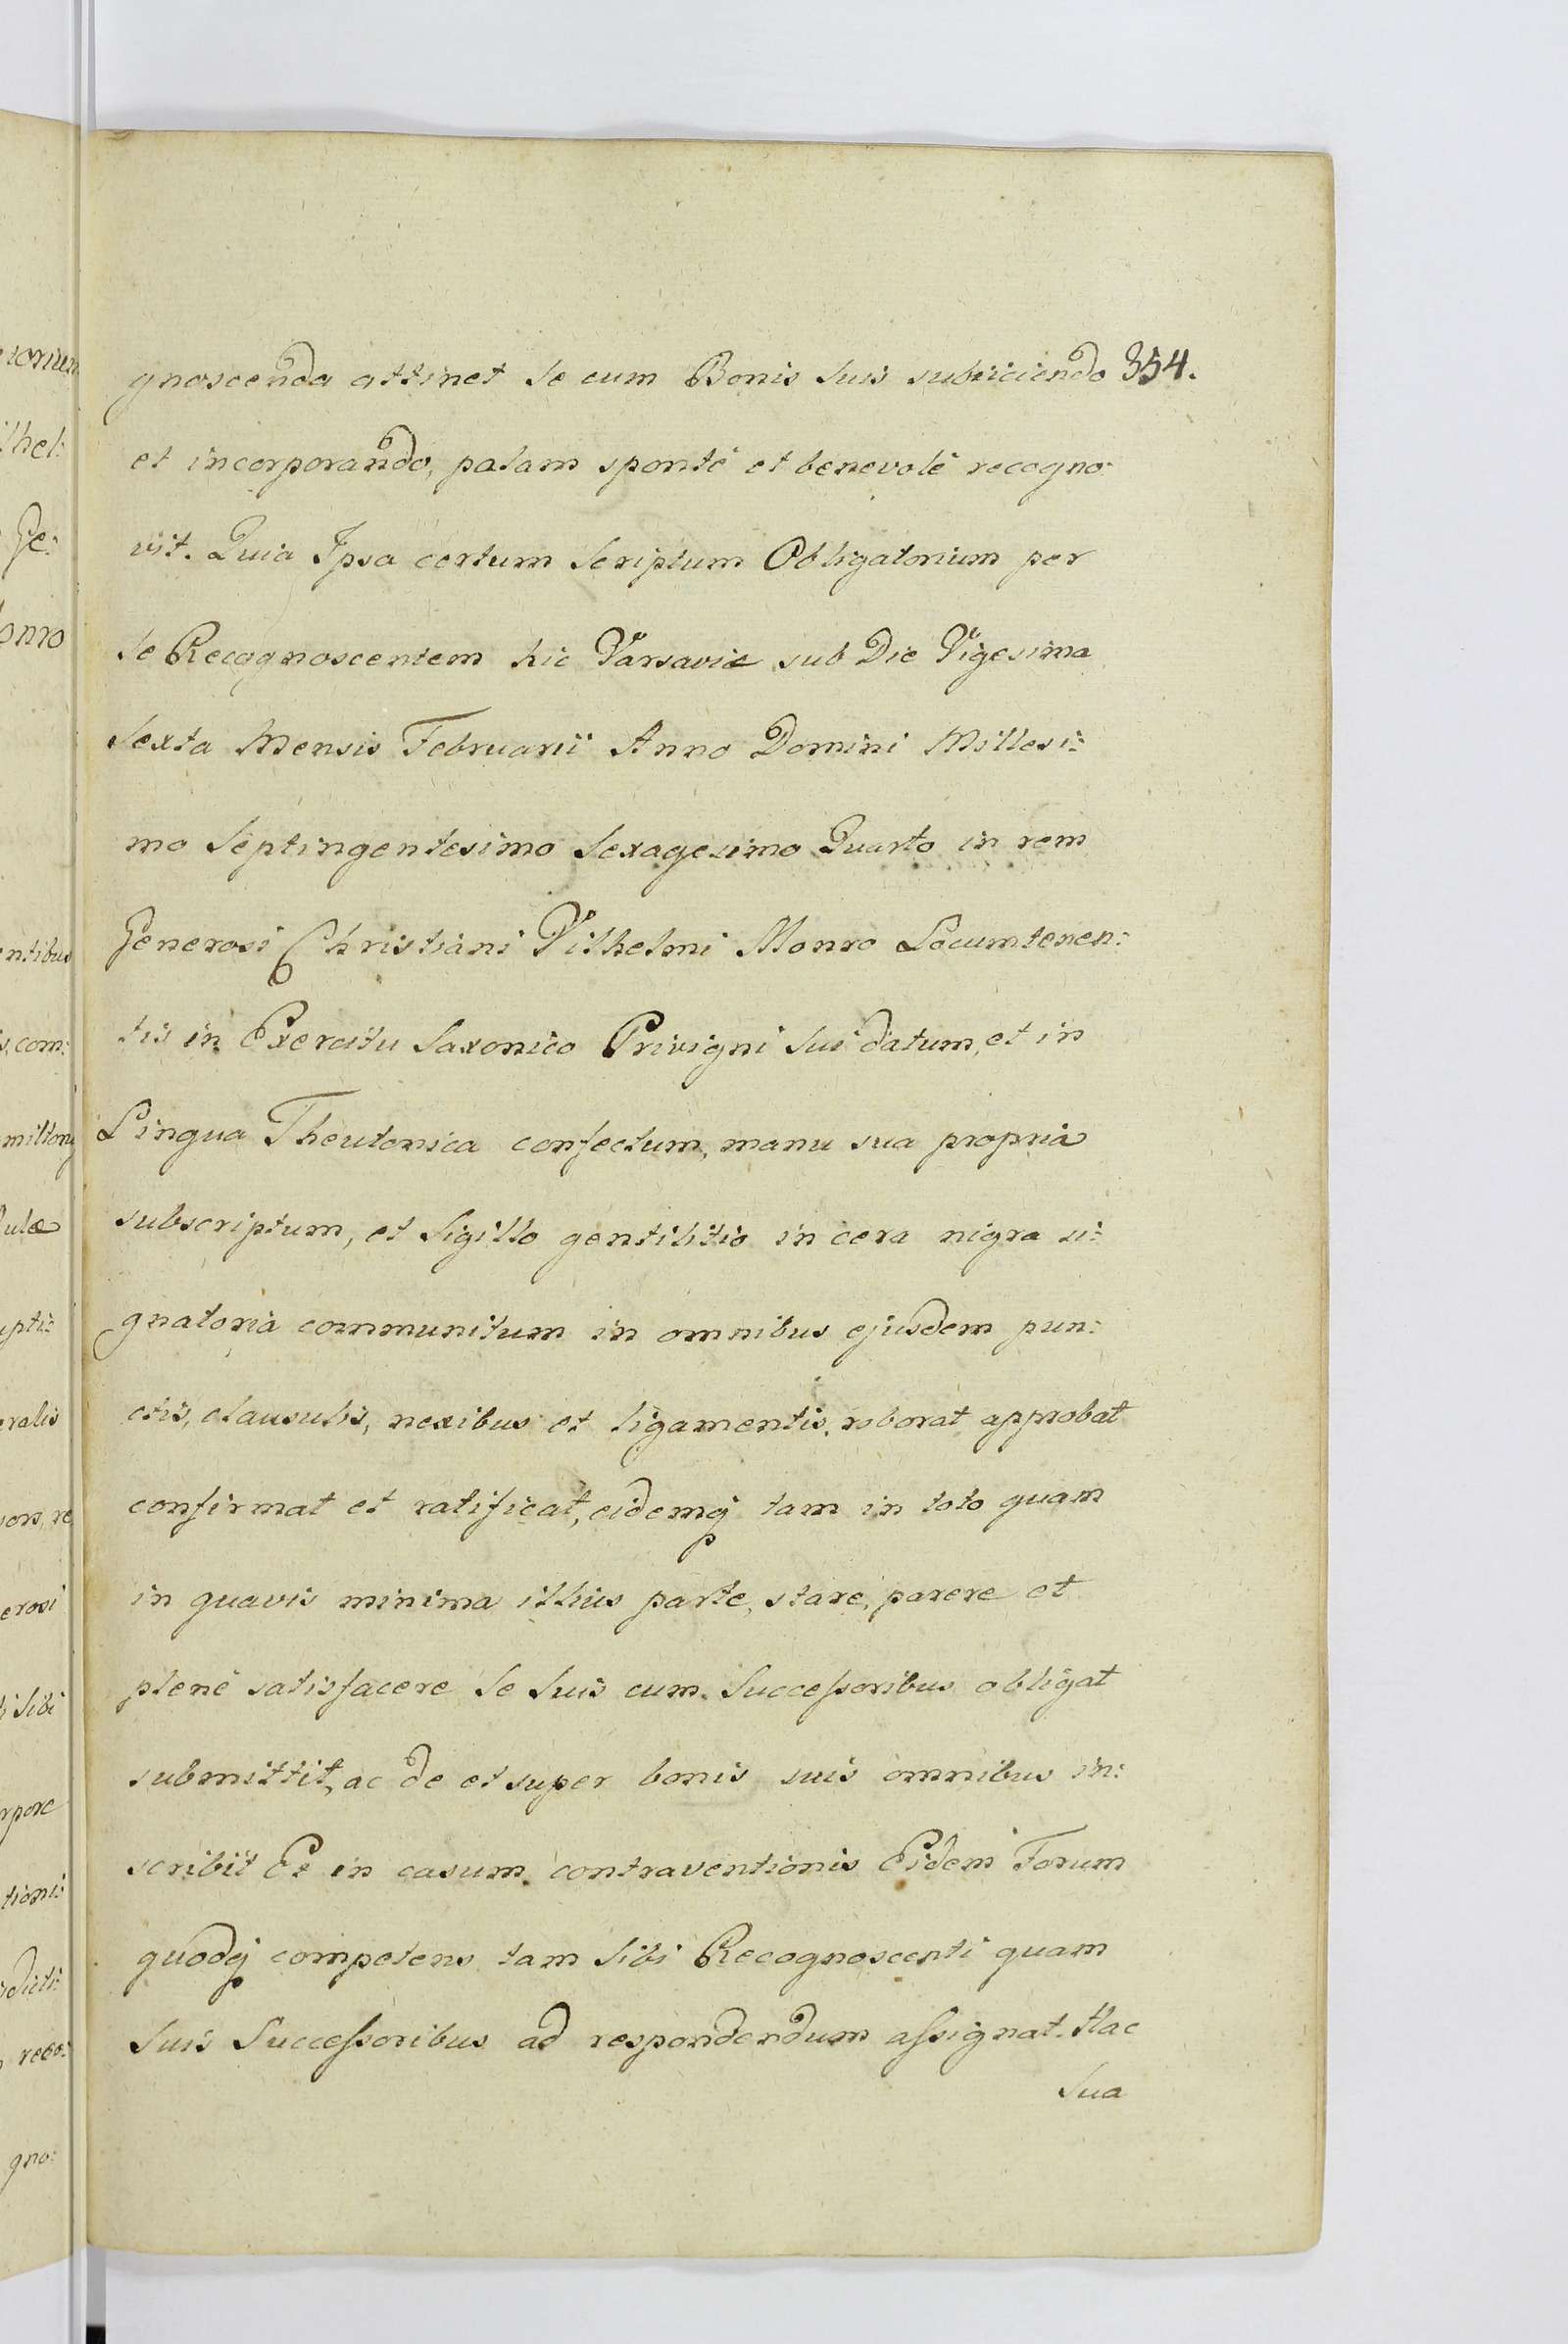 gnoscenda attinet Se cum Bonis Suis subiiciendo 354.
et incorporando, palam spontè et benevolè recogno:
vit. Quia Ipsa certum Scriptum Obligatorium per
Se Recognoscentem hic Varsaviæ sub Die Vigesima
Sexta Mensis Februarii Anno Domini Millesi:
mo Septingentesimo Sexagesimo Quarto in rem
Generosi Christiani Vilhelmi Monro Locumtenen:
tis in Exercitu Saxonico Privigni Sui datum, et in
Lingua Theutonica confectum, manu sua propria
subscriptum, et Sigillo gentilitio in cera nigra si:
gnatoria communitum in omnibus ejusdem pun:
ctis, clausulis, nexibus et ligamentis, roborat approbat
confirmat et ratificat, eidemq tam in toto quam
in quavis minima illius parte, stare, parere et
plenè satisfacere Se Suis cum Successoribus obligat
submittit, ac de et super bonis suis omnibus in:
scribit Et in casum contraventionis Eidem Forum
quodq competens tam Sibi Recognoscenti quam
Suis Successoribus ad respondendum assignat. Hac
Sua
lhel:
Ge:
onro
ntibus
com:
eralis
erosi
Sibi
tionis
gno: